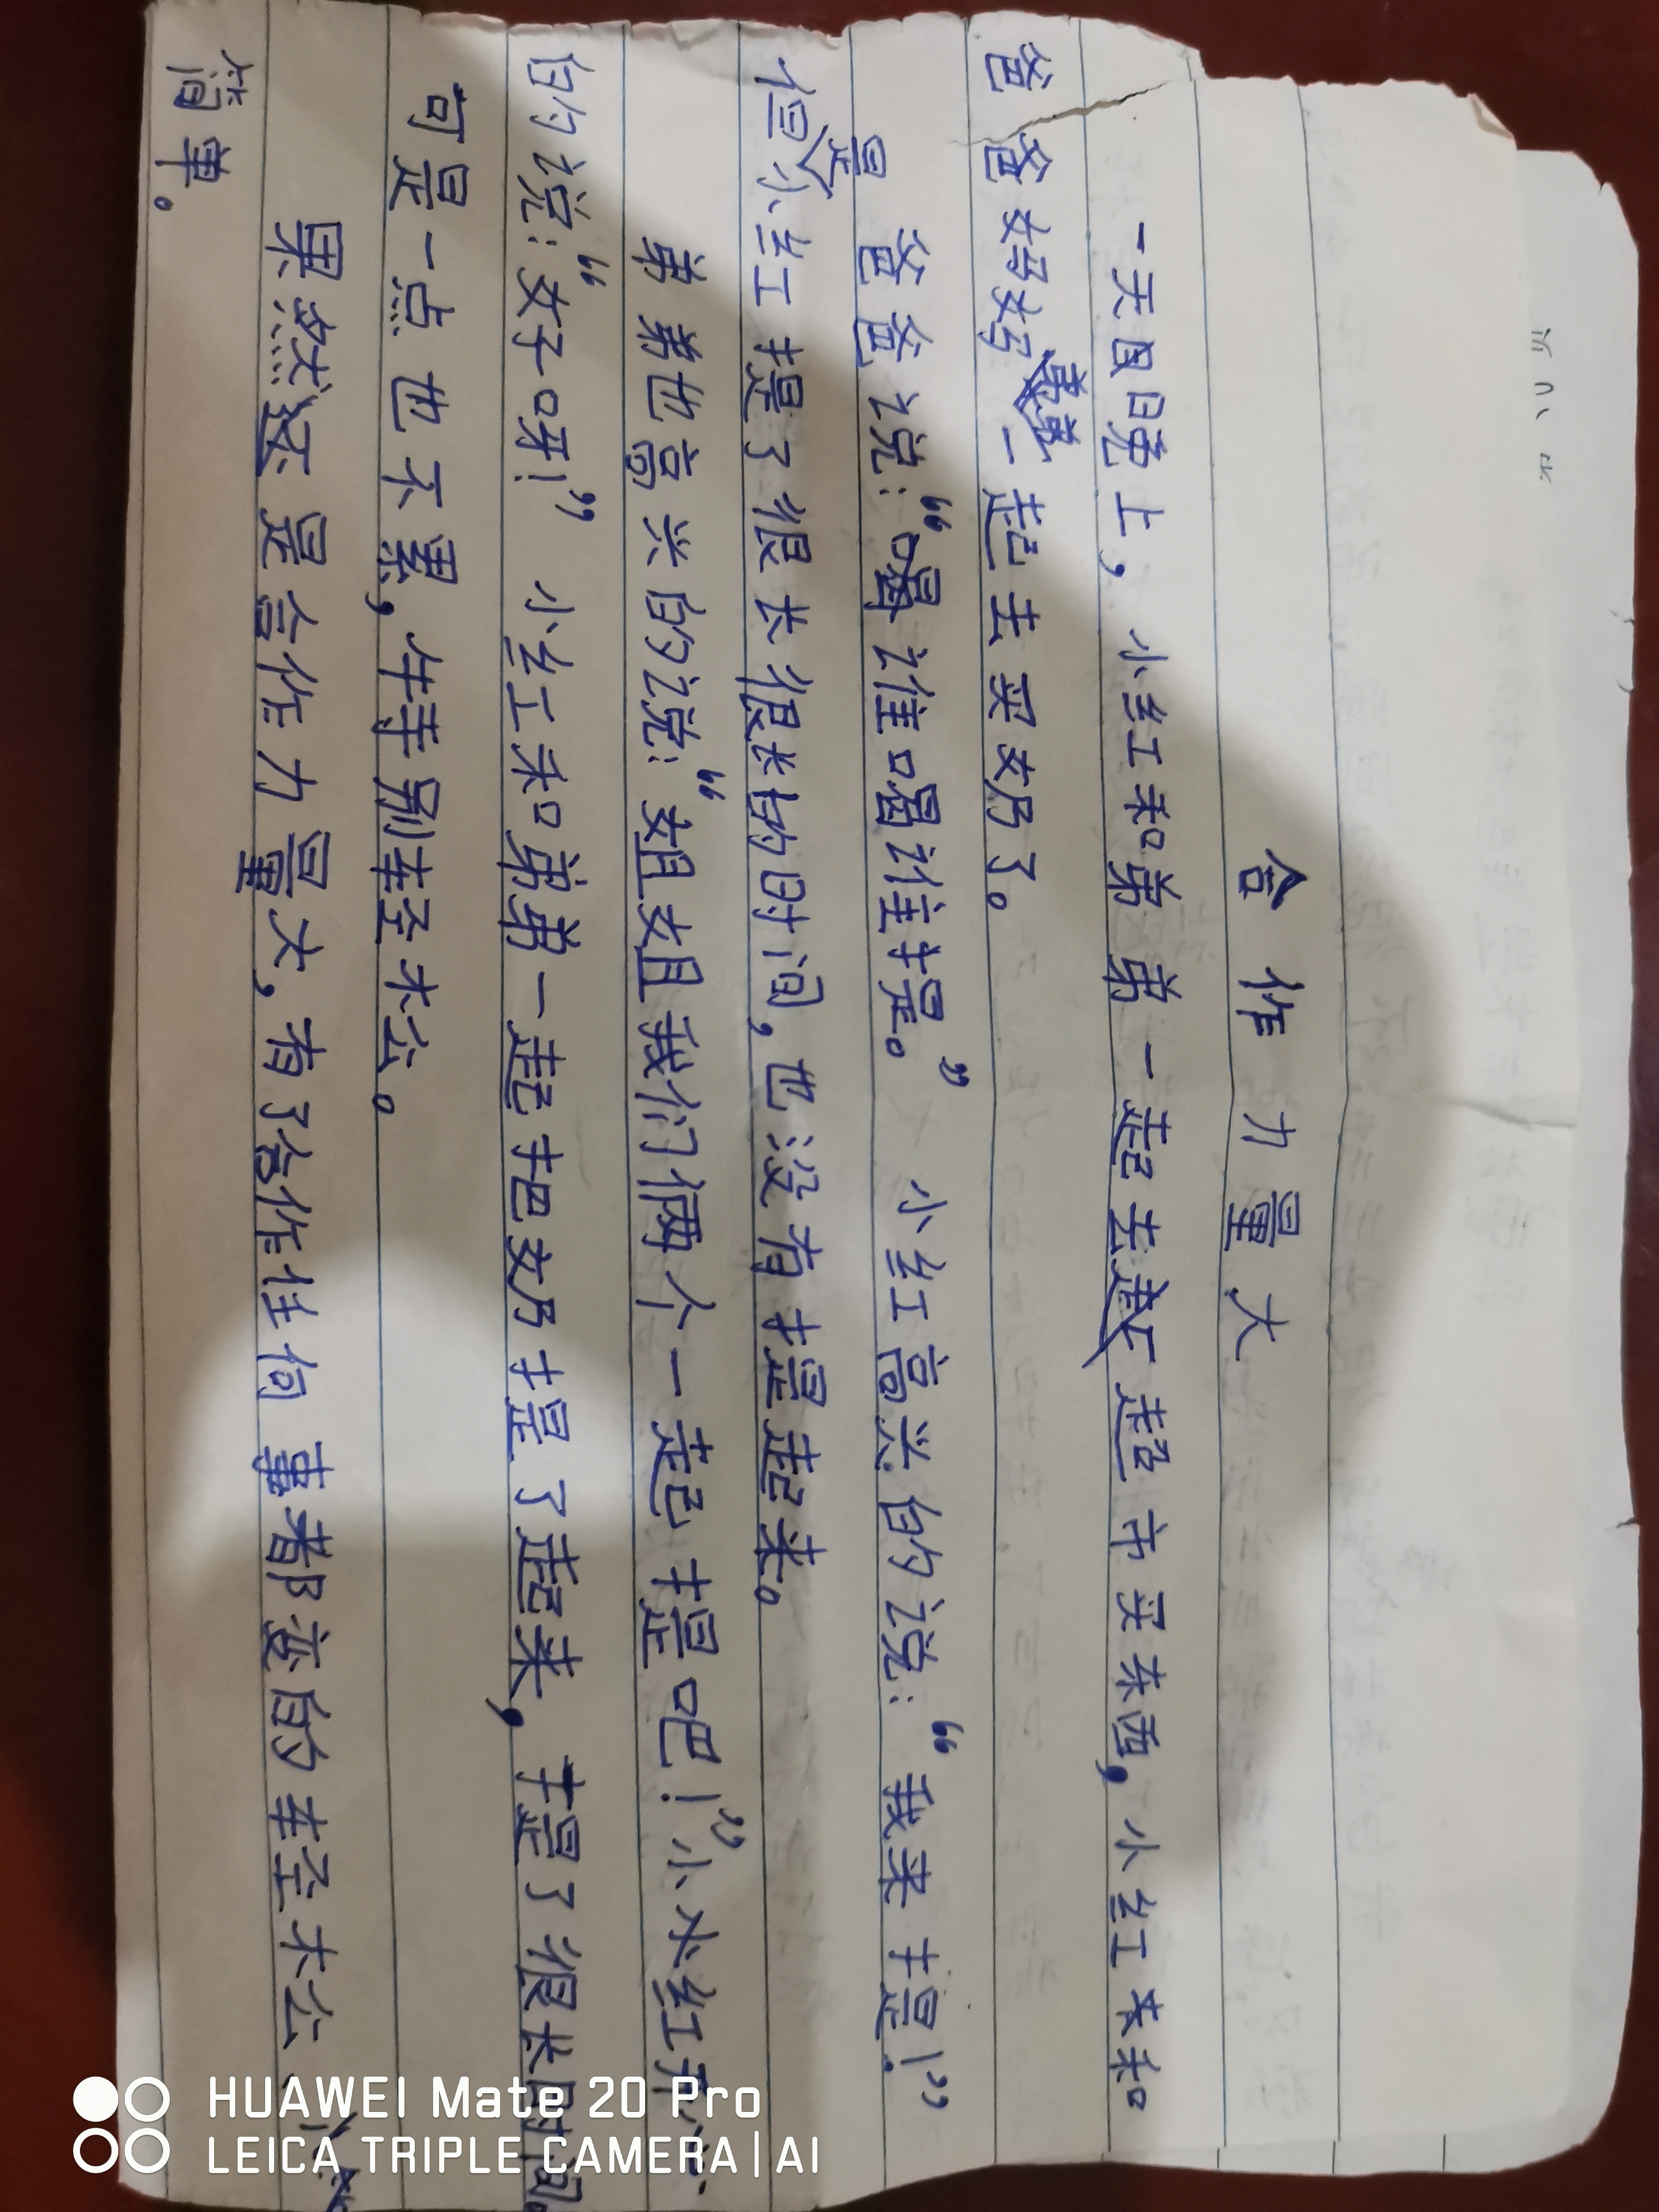 合作力量大
一天日晚上，小红和弟弟一起去超市买东西，小红来和
爸爸妈妈一起去买奶了。
爸爸说：“喝谁喝谁提。”小红高兴的说：“我来提！”
但是小红提了很长很长的时间，也没有提起来。
弟弟也高兴的说：“姐姐我们俩个一起提吧！”小红开心
的说：“好呀！”小红和弟弟一起把奶提了起来，提了很长时间。
可是一点也不累，特别轻松。
果然还是合作力量大，有了合作任何事都变的轻松、
简单。
HUAWEI Mate 20 Pro
LEICA TRIPLE CAMERA | AI